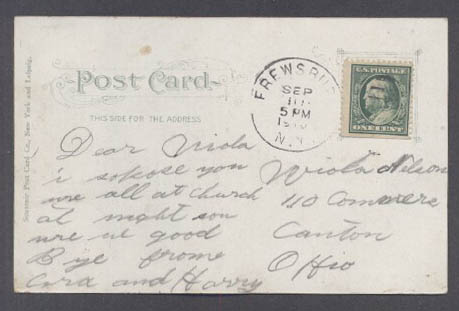 Post Card.
THIS SIDE FOR THE ADDRESS
Souvenir Post Card Co., New York and Leipzig.
FREWSBU
SEP
5 PM
N.Y.
U.S. POSTAGE
ONE CENT
Dear Viola
i sopose you
are all at church
at night
are ue good
B ye frome
Cora and Harry
Wiola Nelson
110 Commerce
Canton
Ohio